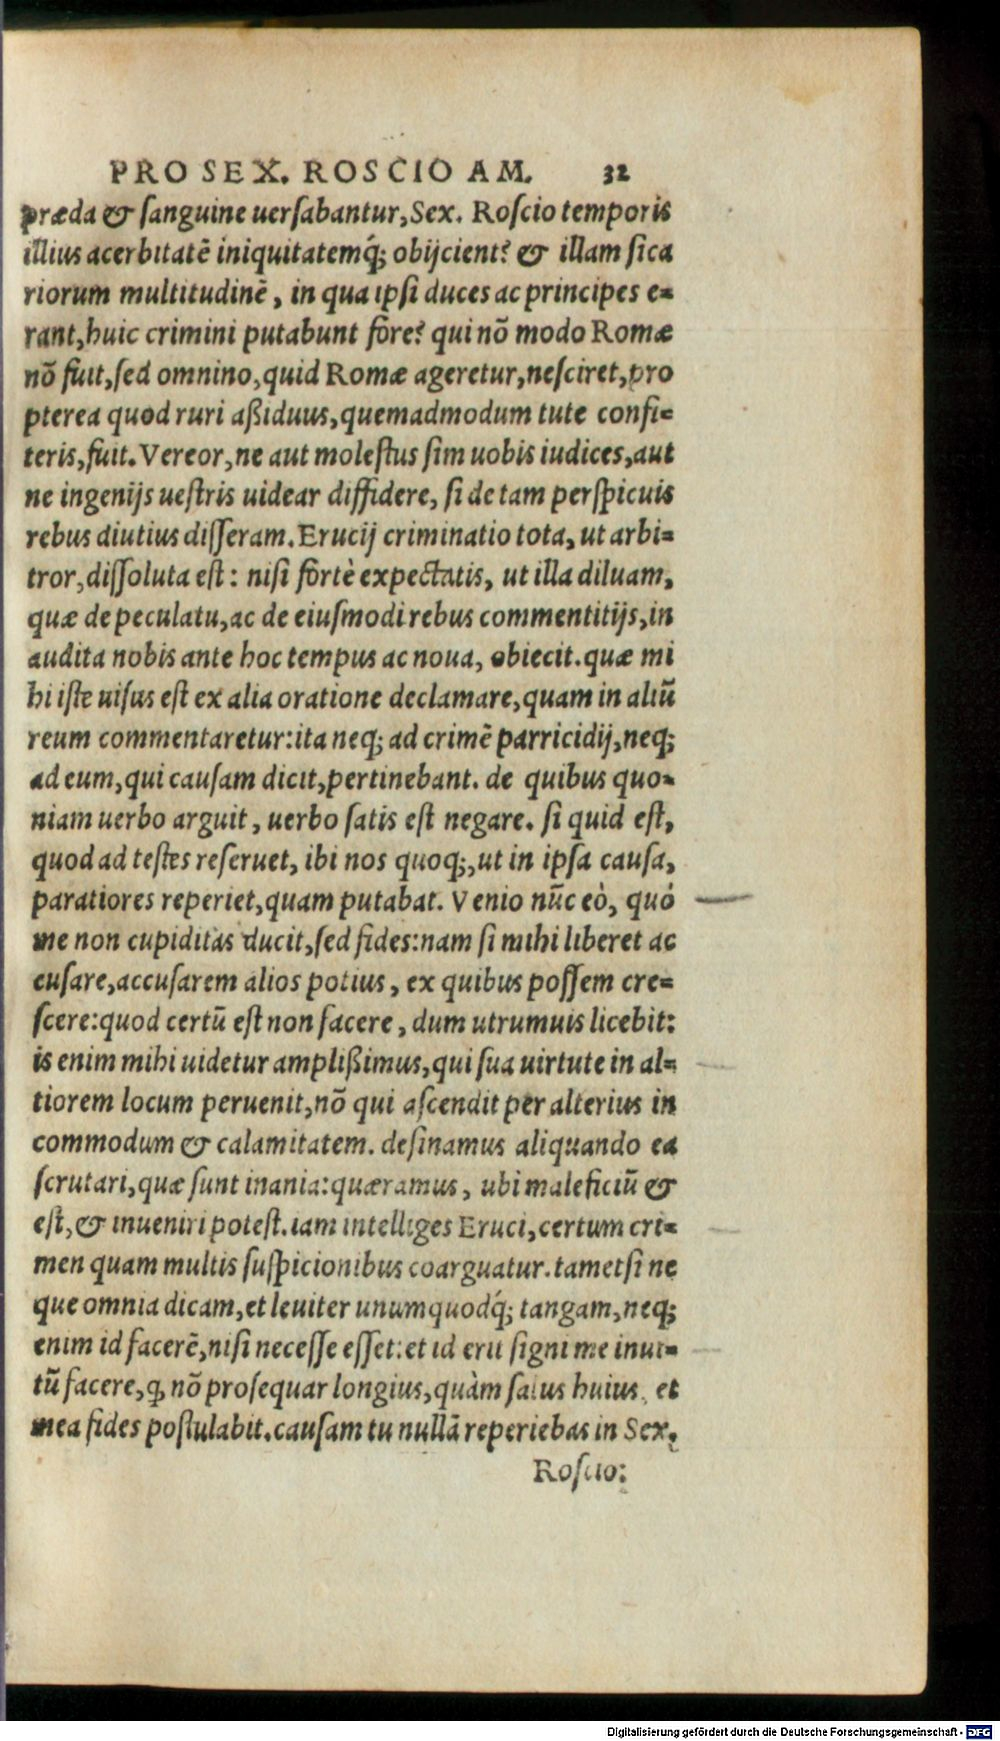 PRO SEX. ROSCIO AM. 32
præda & ſanguine uerſabantur, Sex. Roſcio temporis
illius acerbitatē iniquitatemq́; obijcient? & illam ſica
riorum multitudinē, in qua ipſi duces ac principes e=
rant, huic crimini putabunt fore? qui nō modo Romæ
nō fuit, ſed omnino, quid Romæ ageretur, neſciret, pro
pterea quod ruri aßiduus, quemadmodum tute confi=
teris, fuit. Vereor, ne aut moleſtus ſim uobis iudices, aut
ne ingenijs ueſtris uidear diffidere, ſi de tam perſpicuis
rebus diutius diſſeram. Erucij criminatio tota, ut arbi=
tror, diſſoluta eſt: niſi fortè expectatis, ut illa diluam,
quæ de peculatu, ac de eiuſmodi rebus commentitijs, in
audita nobis ante hoc tempus ac noua, obiecit. quæ mi
hi iſte uiſus eſt ex alia oratione declamare, quam in aliū
reum commentaretur: ita neq; ad crimē parricidij, neq;
ad eum, qui cauſam dicit, pertinebant. de quibus quo=
niam uerbo arguit, uerbo ſatis eſt negare. ſi quid eſt,
quod ad teſtes reſeruet, ibi nos quoq;, ut in ipſa cauſa,
paratiores reperiet, quam putabat. Venio nūc eò, quó
me non cupiditas ducit, ſed fides: nam ſi mihi liberet ac
cuſare, accuſarem alios potius, ex quibus poſſem cre=
ſcere: quod certū eſt non facere, dum utrumuis licebit:
is enim mihi uidetur amplißimus, qui ſua uirtute in al=
tiorem locum peruenit, nō qui aſcendit per alterius in
commodum & calamitatem. deſinamus aliquando ea
ſcrutari, quæ ſunt inania: quæramus, ubi maleficiū &
eſt, & inueniri poteſt. iam intelliges Eruci, certum cri=
men quam multis ſuſpicionibus coarguatur. tametſi ne
que omnia dicam, et leuiter unumquodq́; tangam, neq;
enim id facerē, niſi neceſſe eſſet: et id erit ſigni me inui=
tū facere, ꝙ nō proſequar longius, quàm ſalus huius, et
mea fides poſtulabit. cauſam tu nullā reperiebas in Sex.
Roſcio:
Digitalisierung gefördert durch die Deutsche Forschungsgemeinschaft - DFG